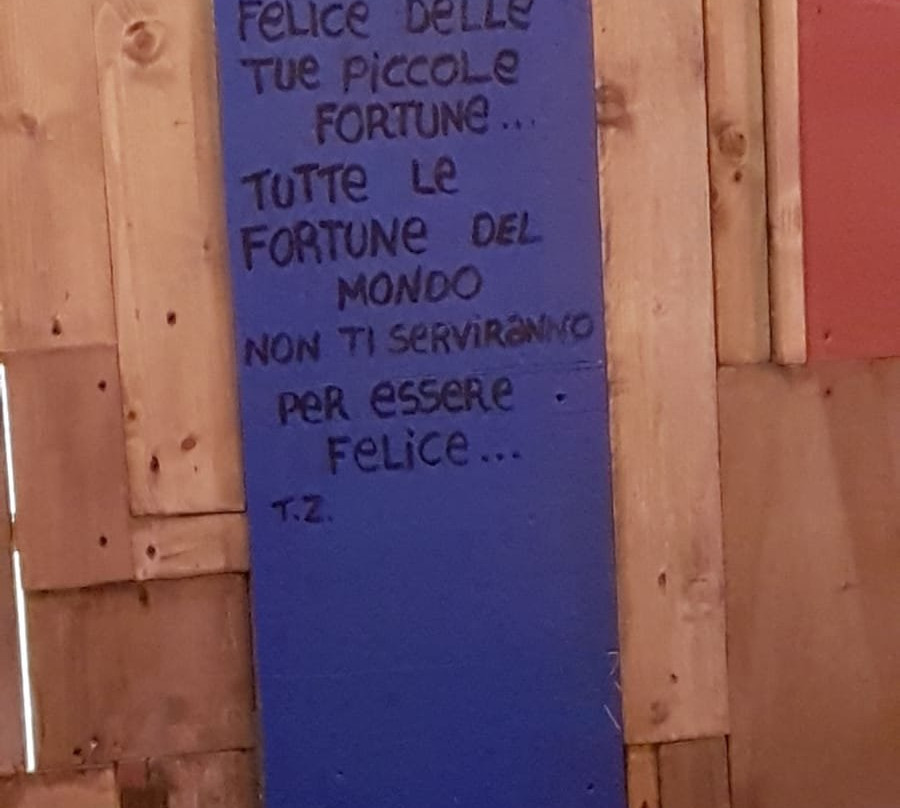 FeLICe DeLLe
TUe PiCCOLe
FORTUNe...
TUTTe Le
FORTUNe DEL
MONDO
NON TI SeRVIRaNNO
PeR eSSeRe
FeLiCe...
T.Z.